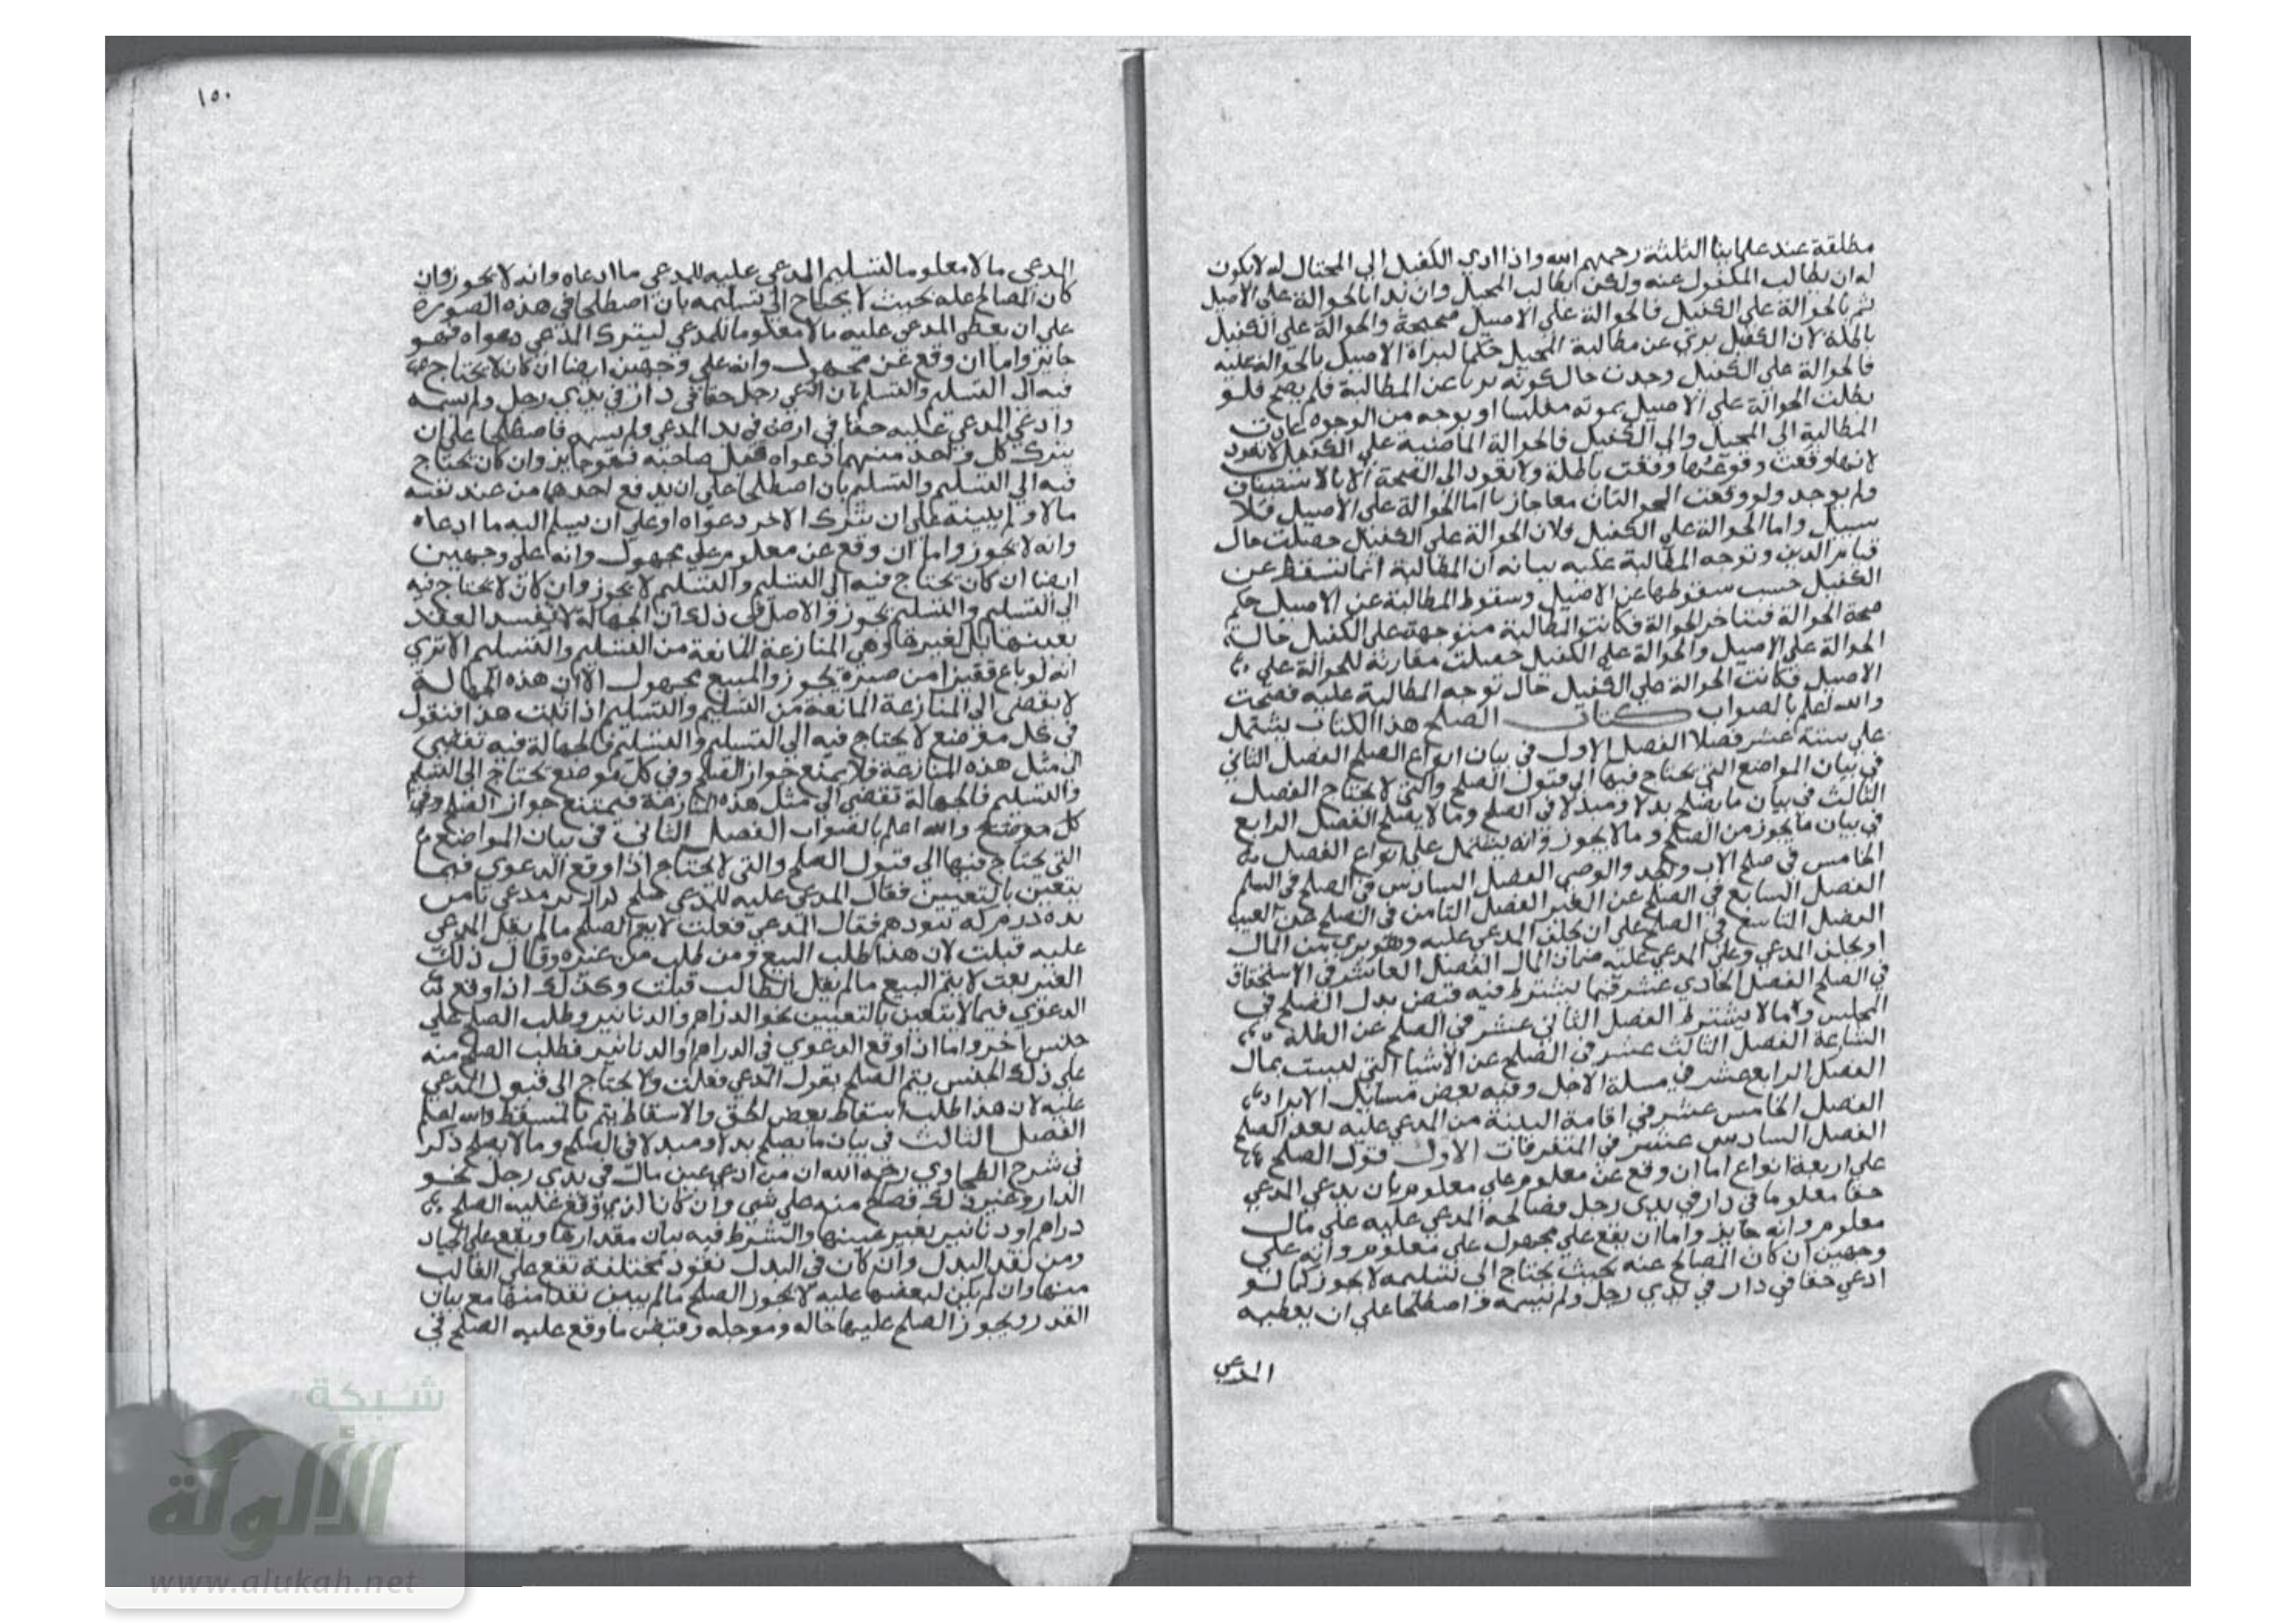 مطلقة عند علمائنا الثلثة رحمهم الله واذا ادى الكفيل الى المحتال له لا يكون
له ان يطالب المكفول عنه ولكن يطالب المحيل وان بدا بالحوالة على الاصيل
ثم بالحوالة على الكفيل فالحوالة على الاصيل صحيحة والحوالة على الكفيل
باطلة لان الكفيل بري عن مطالبة المحيل حكما لبراة الاصيل بالحوالة عليه
فالحوالة على الكفيل وجدت حال كونه بريا عن المطالبة فلم يصح فلو
بطلت الحوالة على الاصيل بموته مفلسا او بوجه من الوجوه عادت
المطالبة الى المحيل والى الكفيل فالحوالة الماضية على الكفيل لا تعود
لانها وقعت وقوعها وقعت باطلة ولا تعود الى الصحة الا بالاستيناف
ولم يوجد ولو وقعت الحوالتان معا جازتا اما الحوالة على الاصيل فلا
سبيل واما الحوالة على الكفيل فلان الحوالة على الكفيل حصلت حال
قيام الدين وتوجه المطالبة عليه بيانه ان المطالبة انما تسقط عن
الكفيل حسب سقوطها عن الاصيل وسقوط المطالبة عن الاصيل حكم
صحة الحوالة فيتاخر الحوالة فكانت المطالبة متوجهة على الكفيل حالة
الحوالة على الاصيل والحوالة على الكفيل حصلت مقارنة للحوالة على
الاصيل فكانت الحوالة على الكفيل حال توجه المطالبة عليه فصحت
والله اعلم بالصواب كتاب الصلح هذا الكتاب يشتمل
على ستة عشر فصلا الفصل الاول في بيان انواع الصلح الفصل الثاني
في بيان المواضع التي يحتاج فيها الى قبول الصلح والتي لا يحتاج الفصل
الثالث في بيان ما يصلح بدلا ومبدلا في الصلح وما لا يصلح الفصل الرابع
في بيان ما يجوز من الصلح وما لا يجوز وانه يشتمل على انواع الفصل
الخامس في صلح الاب والجد والوصي الفصل السادس في الصلح في السلم
الفصل السابع في الصلح عن الغير الفصل الثامن في الصلح عن العيب
الفصل التاسع في الصلح على ان يحلف المدعي عليه وهو بري من المال
او يحلف المدعي وعلى المدعي عليه ضمان المال الفصل العاشر في الاستحقاق
في الصلح الفصل الحادي عشر فيما يشترط فيه قبض بدل الصلح في
المجلس وما لا يشترط الفصل الثاني عشر في الصلح عن الظلة
الشارعة الفصل الثالث عشر في الصلح عن الاشيا التي ليست بمال
الفصل الرابع عشر في مسلة الاجل وفيه بعض مسايل الابرا
الفصل الخامس عشر في اقامة البينة من المدعي عليه بعد الصلح
الفصل السادس عشر في المتفرقات الاول قبول الصلح
على اربعة انواع اما ان وقع عن معلوم على معلوم بان يدعي المدعي
حقا معلوما في دار في يدي رجل فصالحه المدعي عليه على مال
معلوم وانه جايز واما ان يقع على مجهول على معلوم وانه على
وجهين ان كان المصالح عنه بحيث يحتاج الى تسليمه لا يجوز كما لو
ادعى حقا في دار في يدي رجل ولم يسمه واصطلحا على ان يعطيه
المدعي
١٥٠
المدعي مالا معلوما لتسليم المدعي عليه للمدعي ما ادعاه وانه لا يجوز وان
كان المصالح عنه بحيث لا يحتاج الى تسليمه بان اصطلحا في هذه الصورة
على ان يعطى المدعي عليه مالا معلوما للمدعي ليترك المدعي دعواه فهو
جائز واما ان وقع عن مجهول وانه على وجهين ايضا ان كان لا يحتاج
فيه الى التسليم والتسلم بان ادعى رجل حقا في دار في يدي رجل ولم يسمه
وادعى المدعي عليه حقا في ارض في يد المدعي ولم يسمه فاصطلحا على ان
يترك كل واحد منهما دعواه قبل صاحبه فهو جايز وان كان يحتاج
فيه الى التسليم والتسلم بان اصطلحا على ان يدفع احدهما من عند نفسه
مالا ولم يبينه على ان يترك الاخر دعواه او على ان يسلم اليه ما ادعاه
وانه لا يجوز واما ان وقع عن معلوم على مجهول وانه على وجهين
ايضا ان كان يحتاج فيه الى التسليم والتسلم لا يجوز وان كان لا يحتاج فيه
الى التسليم والتسلم يجوز والاصل في ذلك ان الجهالة لا تفسد العقد
بعينها بل لغيرها وهي المنازعة المانعة من التسليم والتسلم الا ترى
انه لو باع قفيزا من صبرة يجوز والمبيع مجهول الا ان هذه الجهالة
لا تفضي الى المنازعة المانعة من التسليم والتسلم اذا ثبت هذا فنقول
في كل موضع لا يحتاج فيه الى التسليم والتسلم فالجهالة فيه تفضي
الى مثل هذه المنازعة فلا يمنع جواز الصلح وفي كل موضع يحتاج الى التسليم
والتسلم فالجهالة تفضي الى مثل هذه المنازعة فيمتنع جواز الصلح وفي
كل موضع والله اعلم بالصواب الفصل الثاني في بيان المواضع
التي يحتاج فيها الى قبول الصلح والتي لا يحتاج اذا وقع الدعوى فيما
يتعين بالتعيين فقال المدعي عليه للمدعي صلح
فقال المدعي فعلت لا يتم الصلح ما لم يقل المدعي
عليه قبلت لان هذا طلب البيع ومن طلب من غيره وقال ذلك
الغير بعت لا يتم البيع ما لم يقل الطالب قبلت وكذلك اذا وقع
الدعوى فيما لا يتعين بالتعيين نحو الدراهم والدنانير وطلب الصلح على
جنس اخر واما اذا وقع الدعوى في الدراهم والدنانير فطلب الصلح منه
على ذلك الجنس يتم الصلح بقول المدعي فعلت ولا يحتاج الى قبول المدعي
عليه لان هذا طلب اسقاط بعض الحق والاسقاط يتم بالمسقط والله اعلم
الفصل الثالث في بيان ما يصلح بدلا ومبدلا في الصلح وما لا يصلح ذكر
في شرح الطحاوي رحمه الله ان من ادعى عين مال في يدي رجل نحو
الدار وغير ذلك فصلح منه على شي وان كان الذي وقع عليه الصلح
دراهم او دنانير بغير عينها والشرط فيه بيان مقدارها ويقع على الجياد
ومن نقد البدل وان كان في البدل نقود مختلفة تقع على الغالب
منها وان لم يكن لبعضها عليه لا يجوز الصلح ما لم يبين نقدا منها مع بيان
القدر ويجوز الصلح عليها حاله وموجله وقبض ما وقع عليه الصلح في
شبكة
الألوكة
www.alukah.net